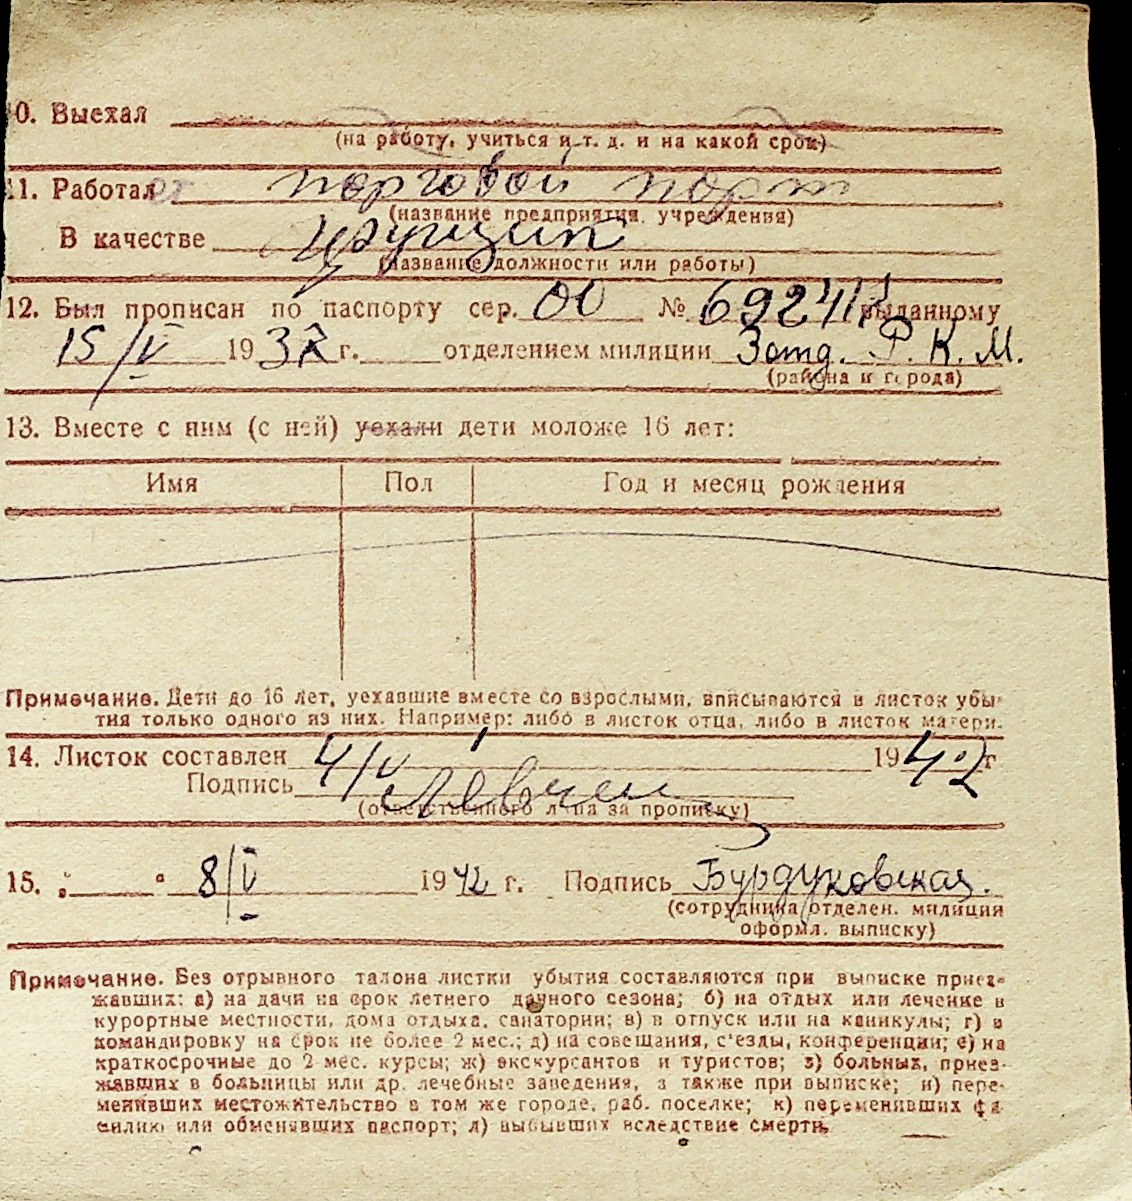 10. Выехал
(на работу, учиться и т. д. и на какой срок)
11. Работал торговой порт
(название предприятия, учреждения)
В качестве грузчик
(название должности или работы)
12. Был прописан по паспорту сер. ОО № 692411 выданному
15/V 1937 г. отделением милиции 3 отд. Р. К. М.
(района и города)
13. Вместе с ним (с ней) уехали дети моложе 16 лет:
Имя Пол Год и месяц рождения
Примечание. Дети до 16 лет, уехавшие вместе со взрослыми, вписываются в листок убы-
тия только одного из них. Например: либо в листок отца, либо в листок матери.
14. Листок составлен 4/V 1942 г
Подпись
(ответственного лица за прописку)
15. „ “ 8/V 1942 г. Подпись Бурдуковская.
(сотрудника отделен. милиции
оформл. выписку)
Примечание. Без отрывного талона листки убытия составляются при выписке приез-
жавших: а) на дачи на срок летнего дачного сезона; б) на отдых или лечение в
курортные местности, дома отдыха, санатории; в) в отпуск или на каникулы; г) в
командировку на срок не более 2 мес.; д) на совещания, с'езды, конференции; е) на
краткосрочные до 2 мес. курсы; ж) экскурсантов и туристов; з) больных, приез-
жавших в больницы или др. лечебные заведения, а также при выписке; и) пере-
менивших местожительство в том же городе, раб. поселке; к) переменивших фа-
милию или обменявших паспорт; л) выбывших вследствие смерти.